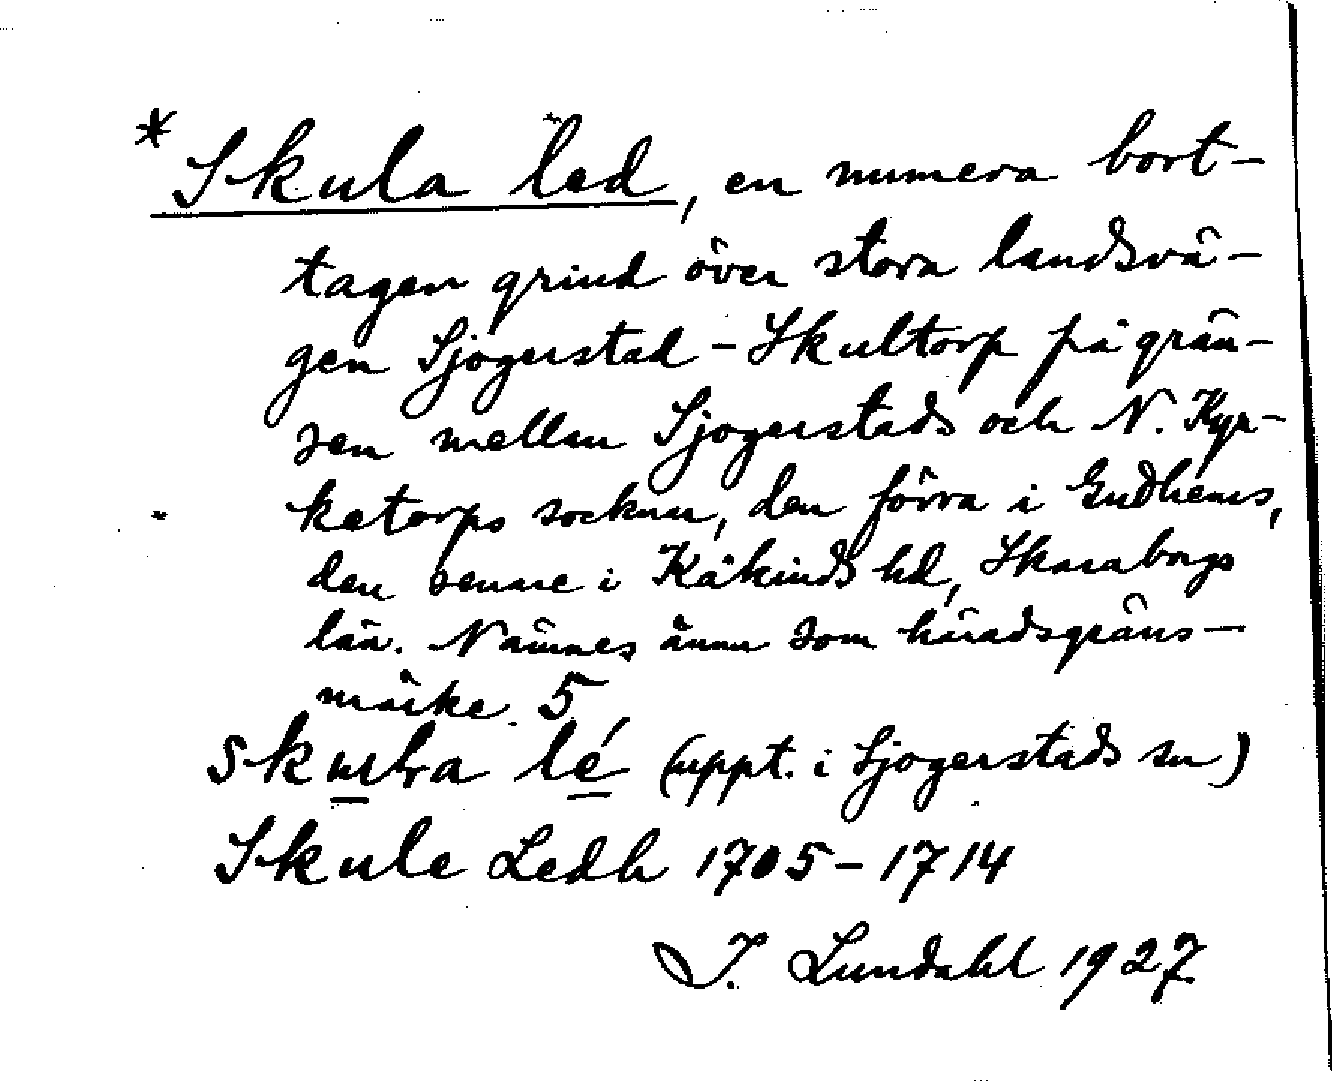 * Skula led, en numera bort-
tagen grind över stora landsvä-
gen Sjogerstad - Skultorp på grän-
sen mellan Sjogerstads och N. Kyr-
ketorps socknar, den förra i Gudhems,
den senare i Kåkinds hd, Skaraborgs
län. Nämnes ännu som häradsgräns-
märke. 5
lé (uppt. i Sjogerstads sn)
Skule Ledh 1705-1714
I. Lundahl 1927